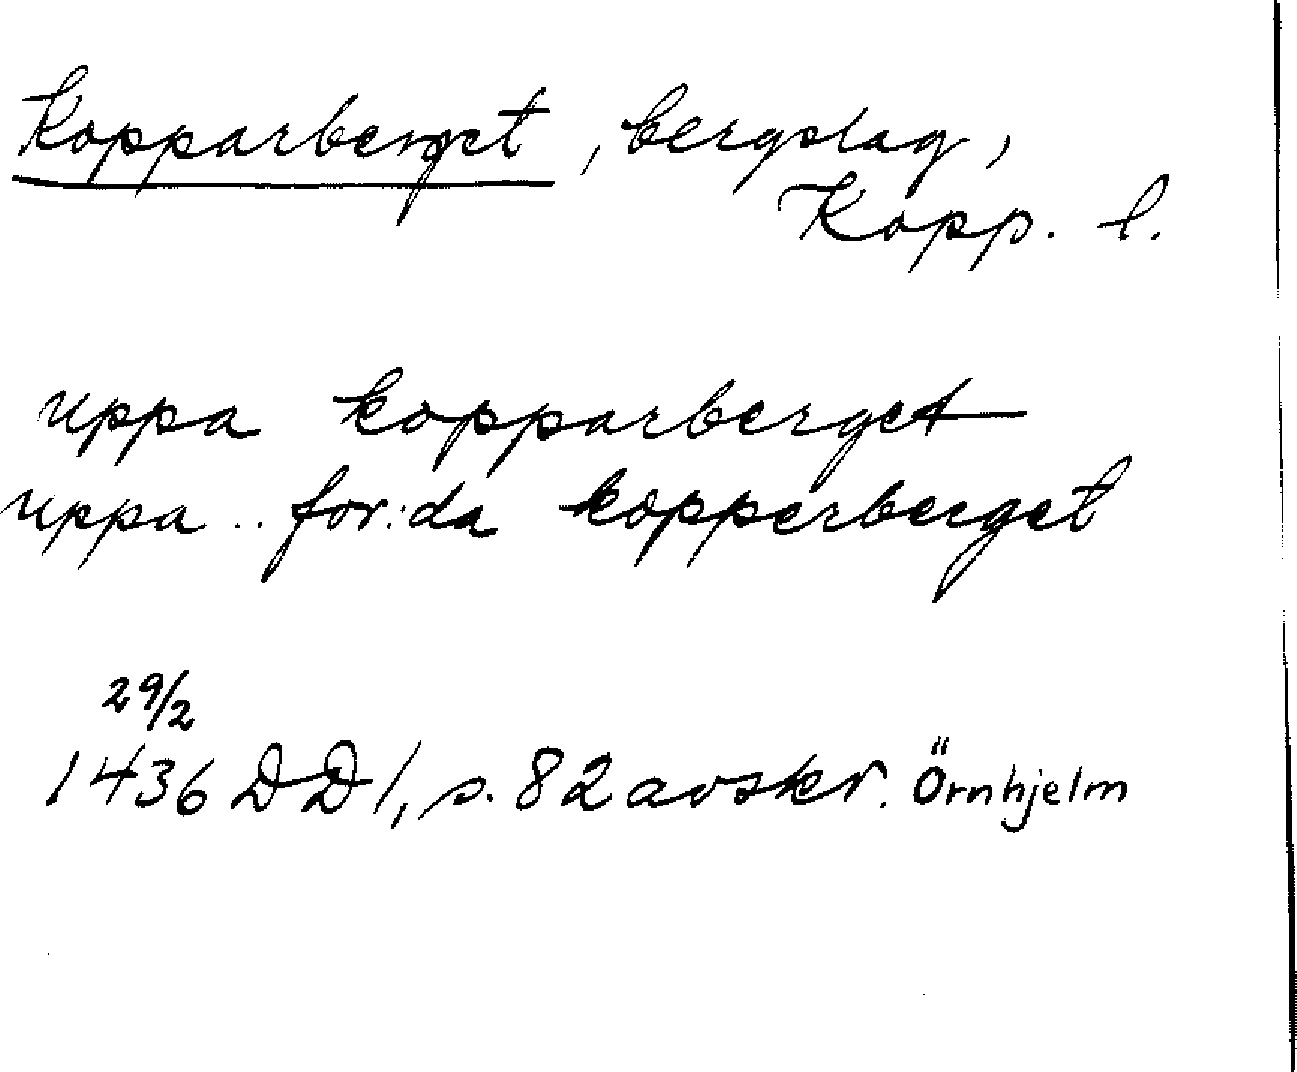 Kopparberget, bergslag,
Kopp. l.
uppa kopparberget
uppa .. for:da kopperberget
29/2
1436 DD 1, s. 82 avskr. Örnhjelm